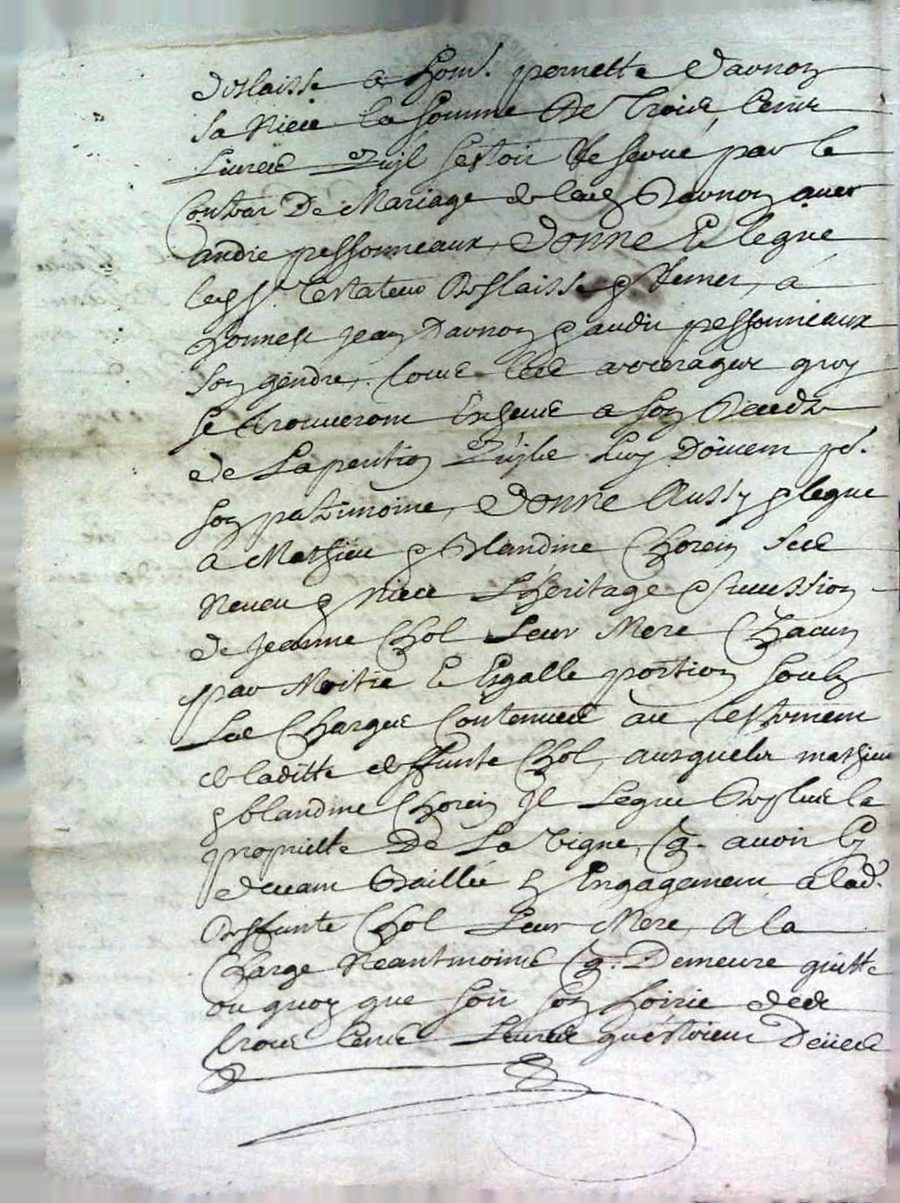 delaisse a hon. pernette Davnon
sa Niece la somme De Trois Cens
Livres qu'il sestoit Reservé par le
Contrat De Mariage de lad Davnon avec
andre pessonneaux, Donne & legue
led Sr. Testateur Delaisse & Remet, a
honnest Jean Davnon & audit pessonneaux
son gendre, tous les arrerages quy
se trouveront Escheus a son Decedz
de La pention qu'ils luy Doivent pr.
son patrimoine, Donne Aussy & legue
a Mathieu & Blandine Chorein ses
Neveu & Niece L'heritage & sucession
de Jeanne Chol Leur Mere Chacun
par Moitié & Esgalle portion soubz
Les Charges Contenues au testament
de laditte deffunte Chol, ausquels mathieu
& blandine Chorein Il Legue De plus la
propriette De La Vigne, q. avoir Cy
devant Baillée En Engagement a lad.
Deffunte Chol Leur Mere, A la
Charge Neantmoins q. Demeure quitte
ou quoy que soit son hoirie desd
trois Cens Livres Deües